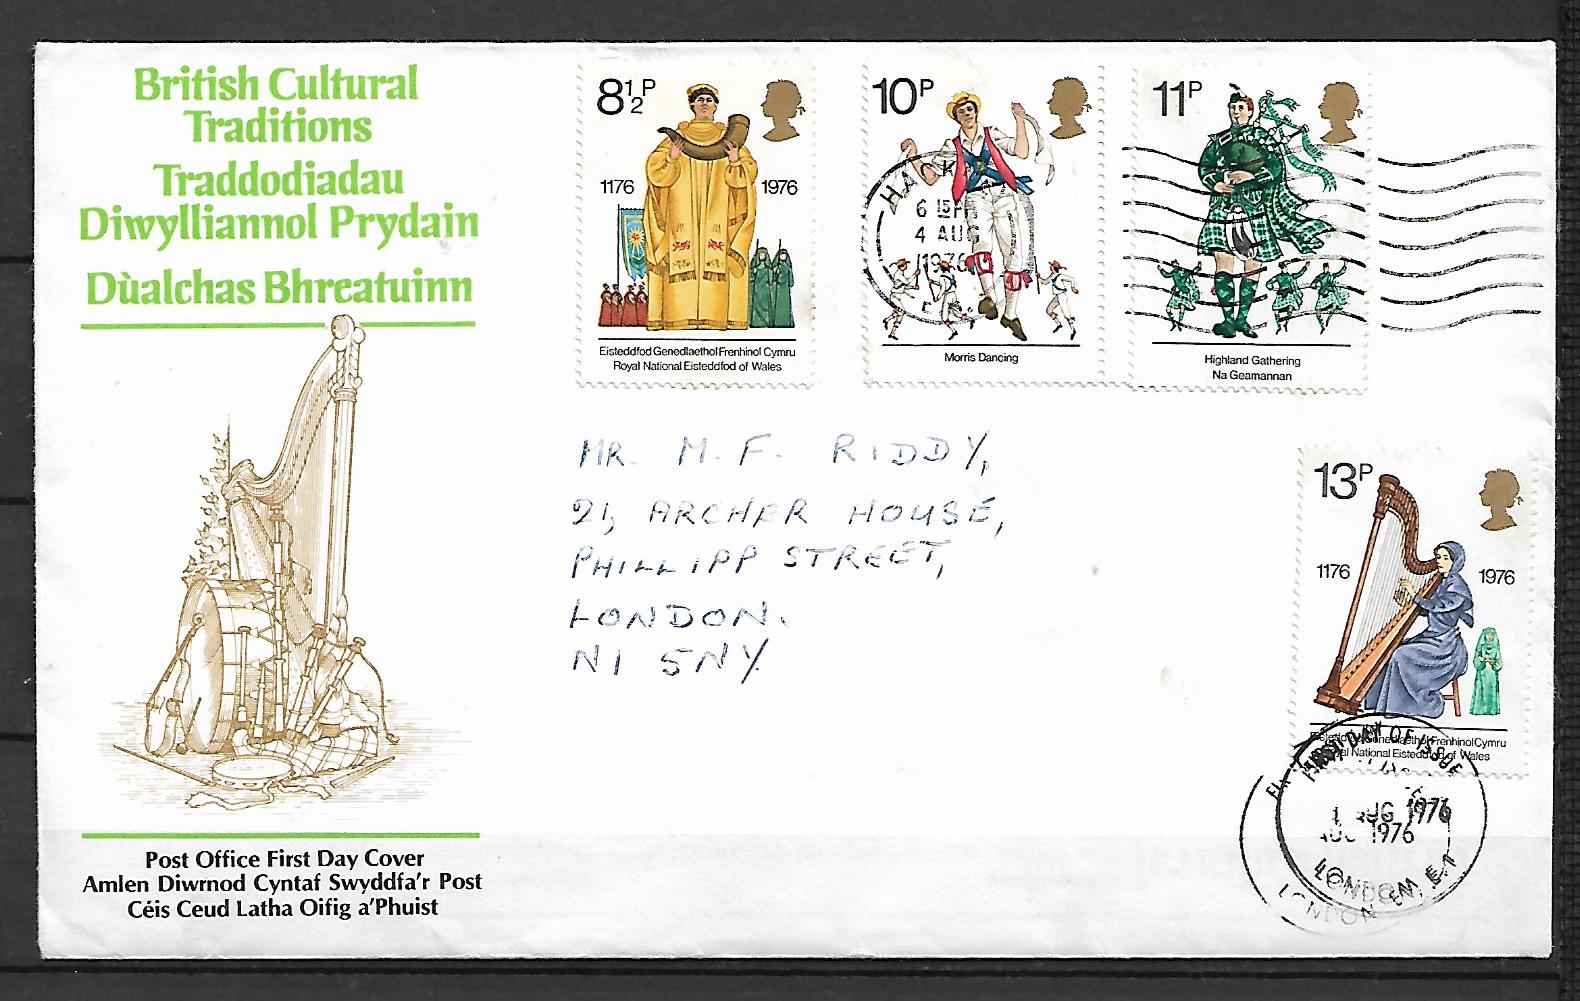 British Cultural
Traditions
Traddodiadau
Diwylliannol Prydain
Dùalchas Bhreatuinn
Post Office First Day Cover
Amlen Diwrnod Cyntaf Swyddfa'r Post
Céis Ceud Latha Oifig a'Phuist
8½P
1176 1976
Eisteddfod Genedlaethol Frenhinol Cymru
Royal National Eisteddfod of Wales
10P
6 15PM
4 AUG
1976
Morris Dancing
11P
Highland Gathering
Na Geamannan
MR. M. F. RIDDY,
21, ARCHER HOUSE,
PHILLIPP STREET,
LONDON.
N1 5NY.
13P
1176 1976
Genedlaethol Frenhinol Cymru
National Eisteddfod of Wales
FIRST DAY OF ISSUE
AUG 1976
AUG 1976
LONDON
LONDON